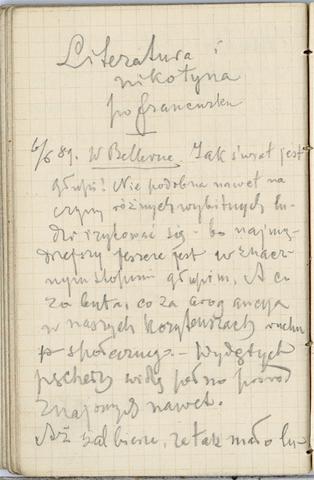 Literatura i
nikotyna
po francusku
6/6 89. W Bellevue. Jak świat jest
głupi! Nie podobna nawet na
czyny różnych wybitnych lu-
dzi rzykować się – bo najmą-
drzejszy jeszcze jest w znacz-
nym stopniu głupim. A co
za buta, co za arogancja
w naszych koryfeuszach ruchu
społeczneg. – Wydętych
pęcherzy widzę pełno pośród
znajomych nawet.
Aż żal bierze, że tak mało lu-